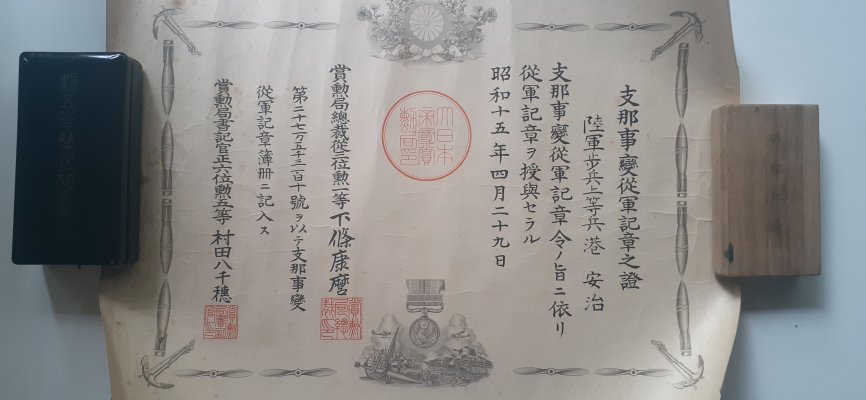 支那事變從軍記章之證
陸軍歩兵上等兵 港 安治
支那事變從軍記章令ノ旨ニ依リ
從軍記章ヲ授與セラル
昭和十五年四月二十九日
大日本
帝國賞
勲局印
賞勲局總裁從三位勲一等下條康麿
第二十七万五千三百十號ヲ以テ支那事變
從軍記章簿册ニ記入ス
賞勲局書記官正六位勲五等村田八千穗